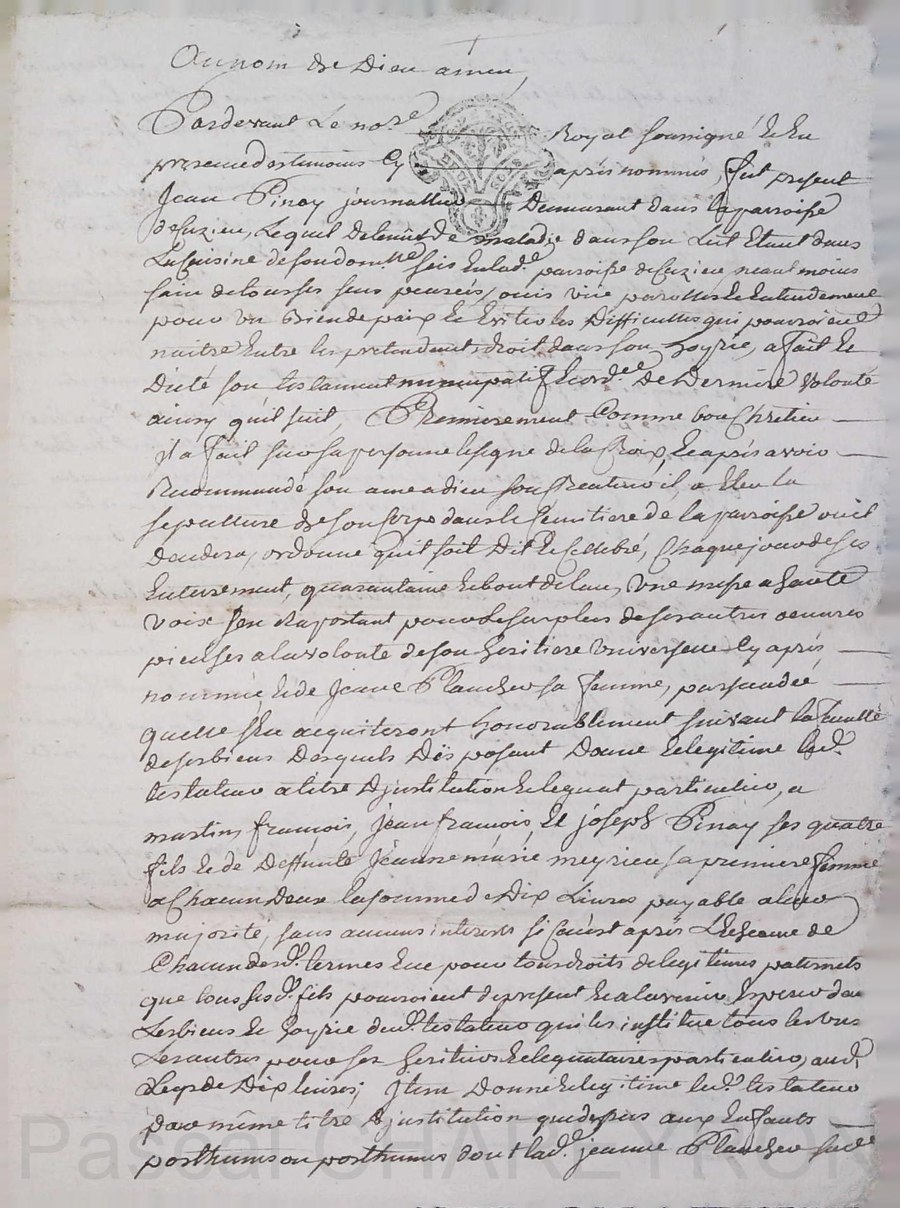 Au nom de Dieu amen,
Pardevant Le no.re Royal soussigné Et En
presence des temoins Cy après nommés, fut present
Jean Pinay journallier Demeurant dans la parroisse
de Cuzieu, Lequel detenu de maladie dans son Lit Etant dans
La Cuisine de son dom.lle sçis En lad.e parroisse de Cuzieu, neantmoins
sain de tous ses sens pensées, ouis vüe parolles Et Entendement
pour un Bien de paix Et Eviter les Difficultés qui pourroient
naitre Entre les pretendants droit dans son hoyrie, a fait Et
Dicté son testament nuncupatif Et ord.ce De Derniere volonté
ainsy qu'il suit, Premierement Comme bon Chretien
il a fait sur sa personne le signe de la Croix, Et après avoir
Recommandé son ame a dieu son Createur il a Eleu la
sepulture de son Corps dans le Cimitiere de la parroisse ou il
decedera, ordonne qu'il soit Dit Et Celebré, Chaque jour de ses
Enterrement, quarantaine Et bout de l'an, une messe a haute
voix s'en Raportant pour le surplus de ses autres oeuvres
pieuses a la volonté de son heritiere universelle Cy après
nommée Et de Jeane Plancher sa femme, persuadé
quelles s'en acquiteront honorablement suivant la faculté
de ses biens Desquels Disposant Donne Et legitime led.
testateur a titre D'justitution Et legat particulier, a
martin, francois, Jean francois, Et joseph Pinay ses quatre
fils Et de Deffunte Jeanne marie meyrieu sa premiere femme
a Chacun Deux la somme de Dix Livres payable a leur
majorité, sans aucuns interests si Ce n'est après L'Echeance de
Chacun desd. termes Et ce pour tous droits de legitimes paternels
que tous sesd. fils pourroient de present Et a l'avenir Esperer dans
Les biens Et hoyrie dud. testateur qui les institue tous les uns
Les autres pour ses heritiers Et legataires particulier, aud.
Legs de Dix livres; Item Donne Et legitime led. testateur
par même titre D'justitution que dessus aux Enfants
posthumes ou posthumes dont lad.e jeanne Plancher sad.e